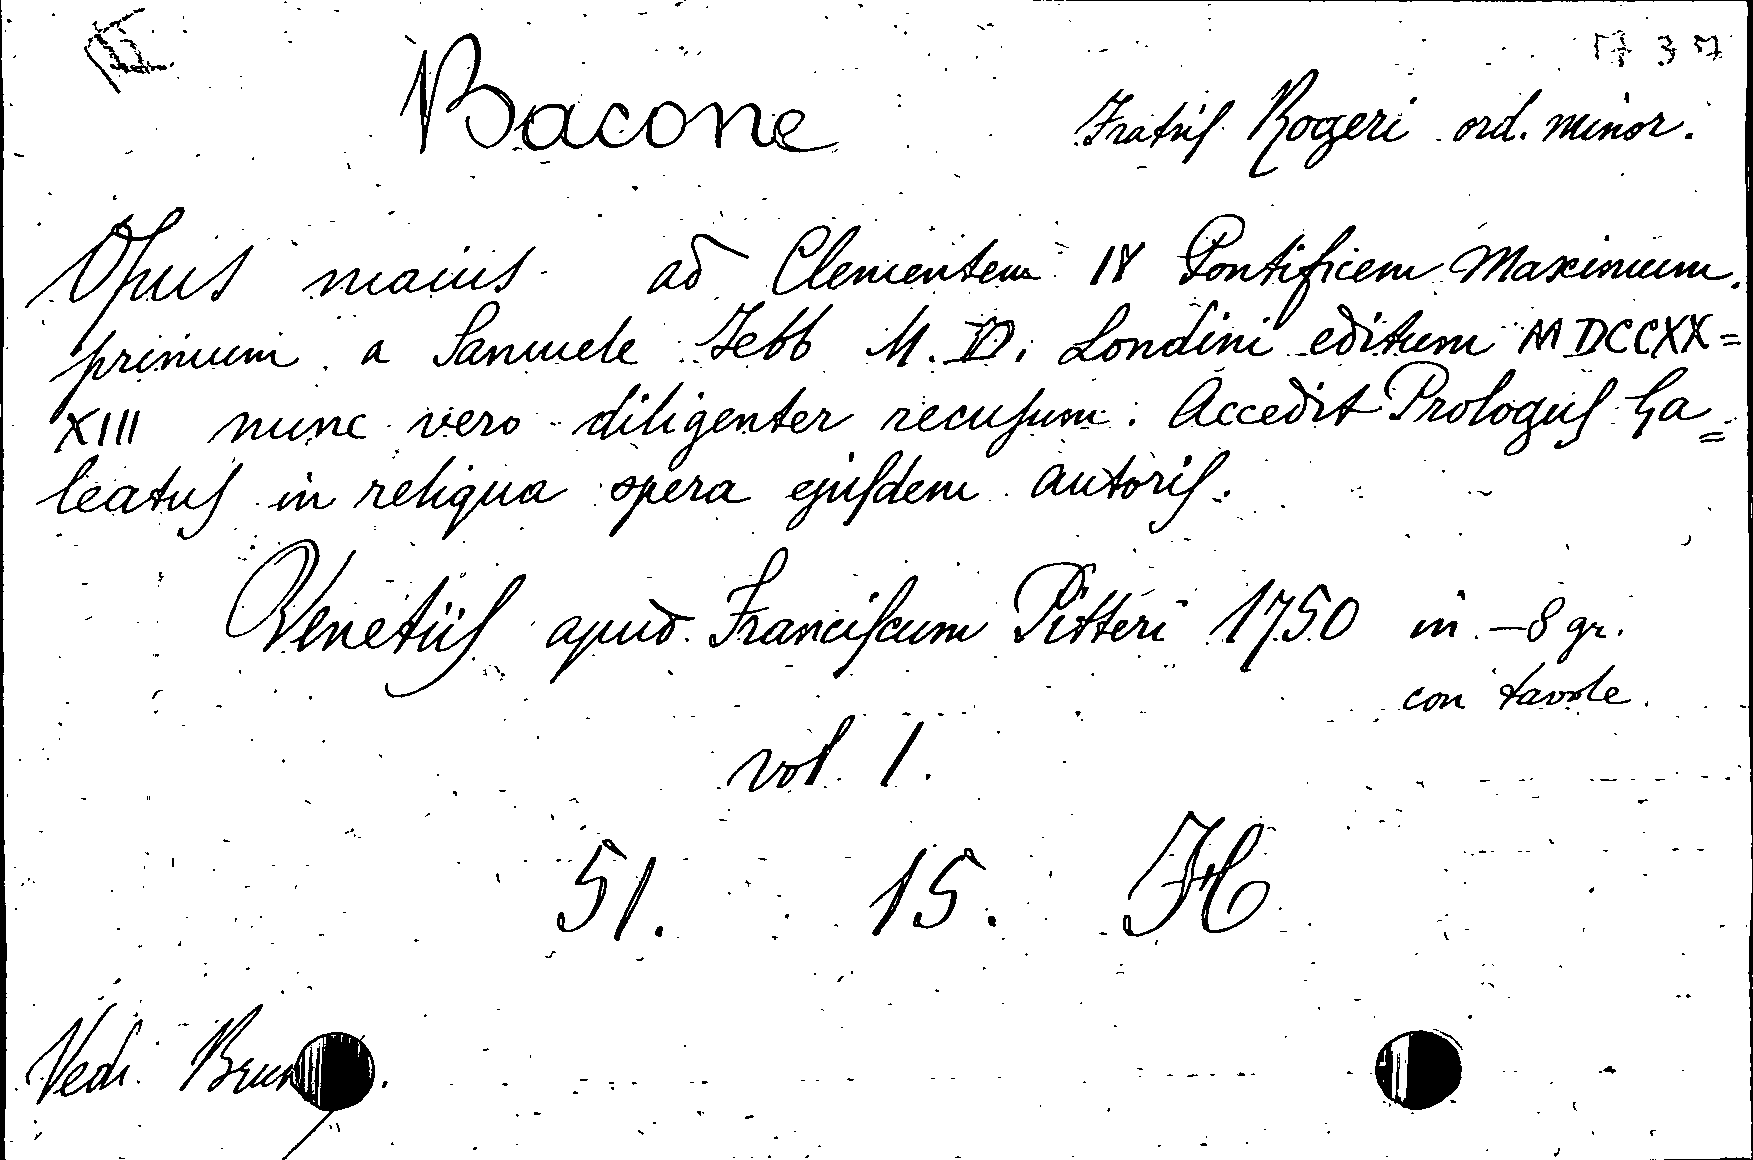 1737
Bacone Fratris Rogeri ord. minor.
Opus maius ad Clementem IV Pontificem Maximum.
primum a Samuele Jebb M. D. Londini editum MDCCXX=
XIII nunc vero diligenter recusum. Accedit Prologus Ga=
leatus in reliqua opera ejusdem autoris.
Venetiis apud Franciscum Pitteri 1750 in-8 gr.
con tavole.
vol. 1.
51. 15. H
Vedi